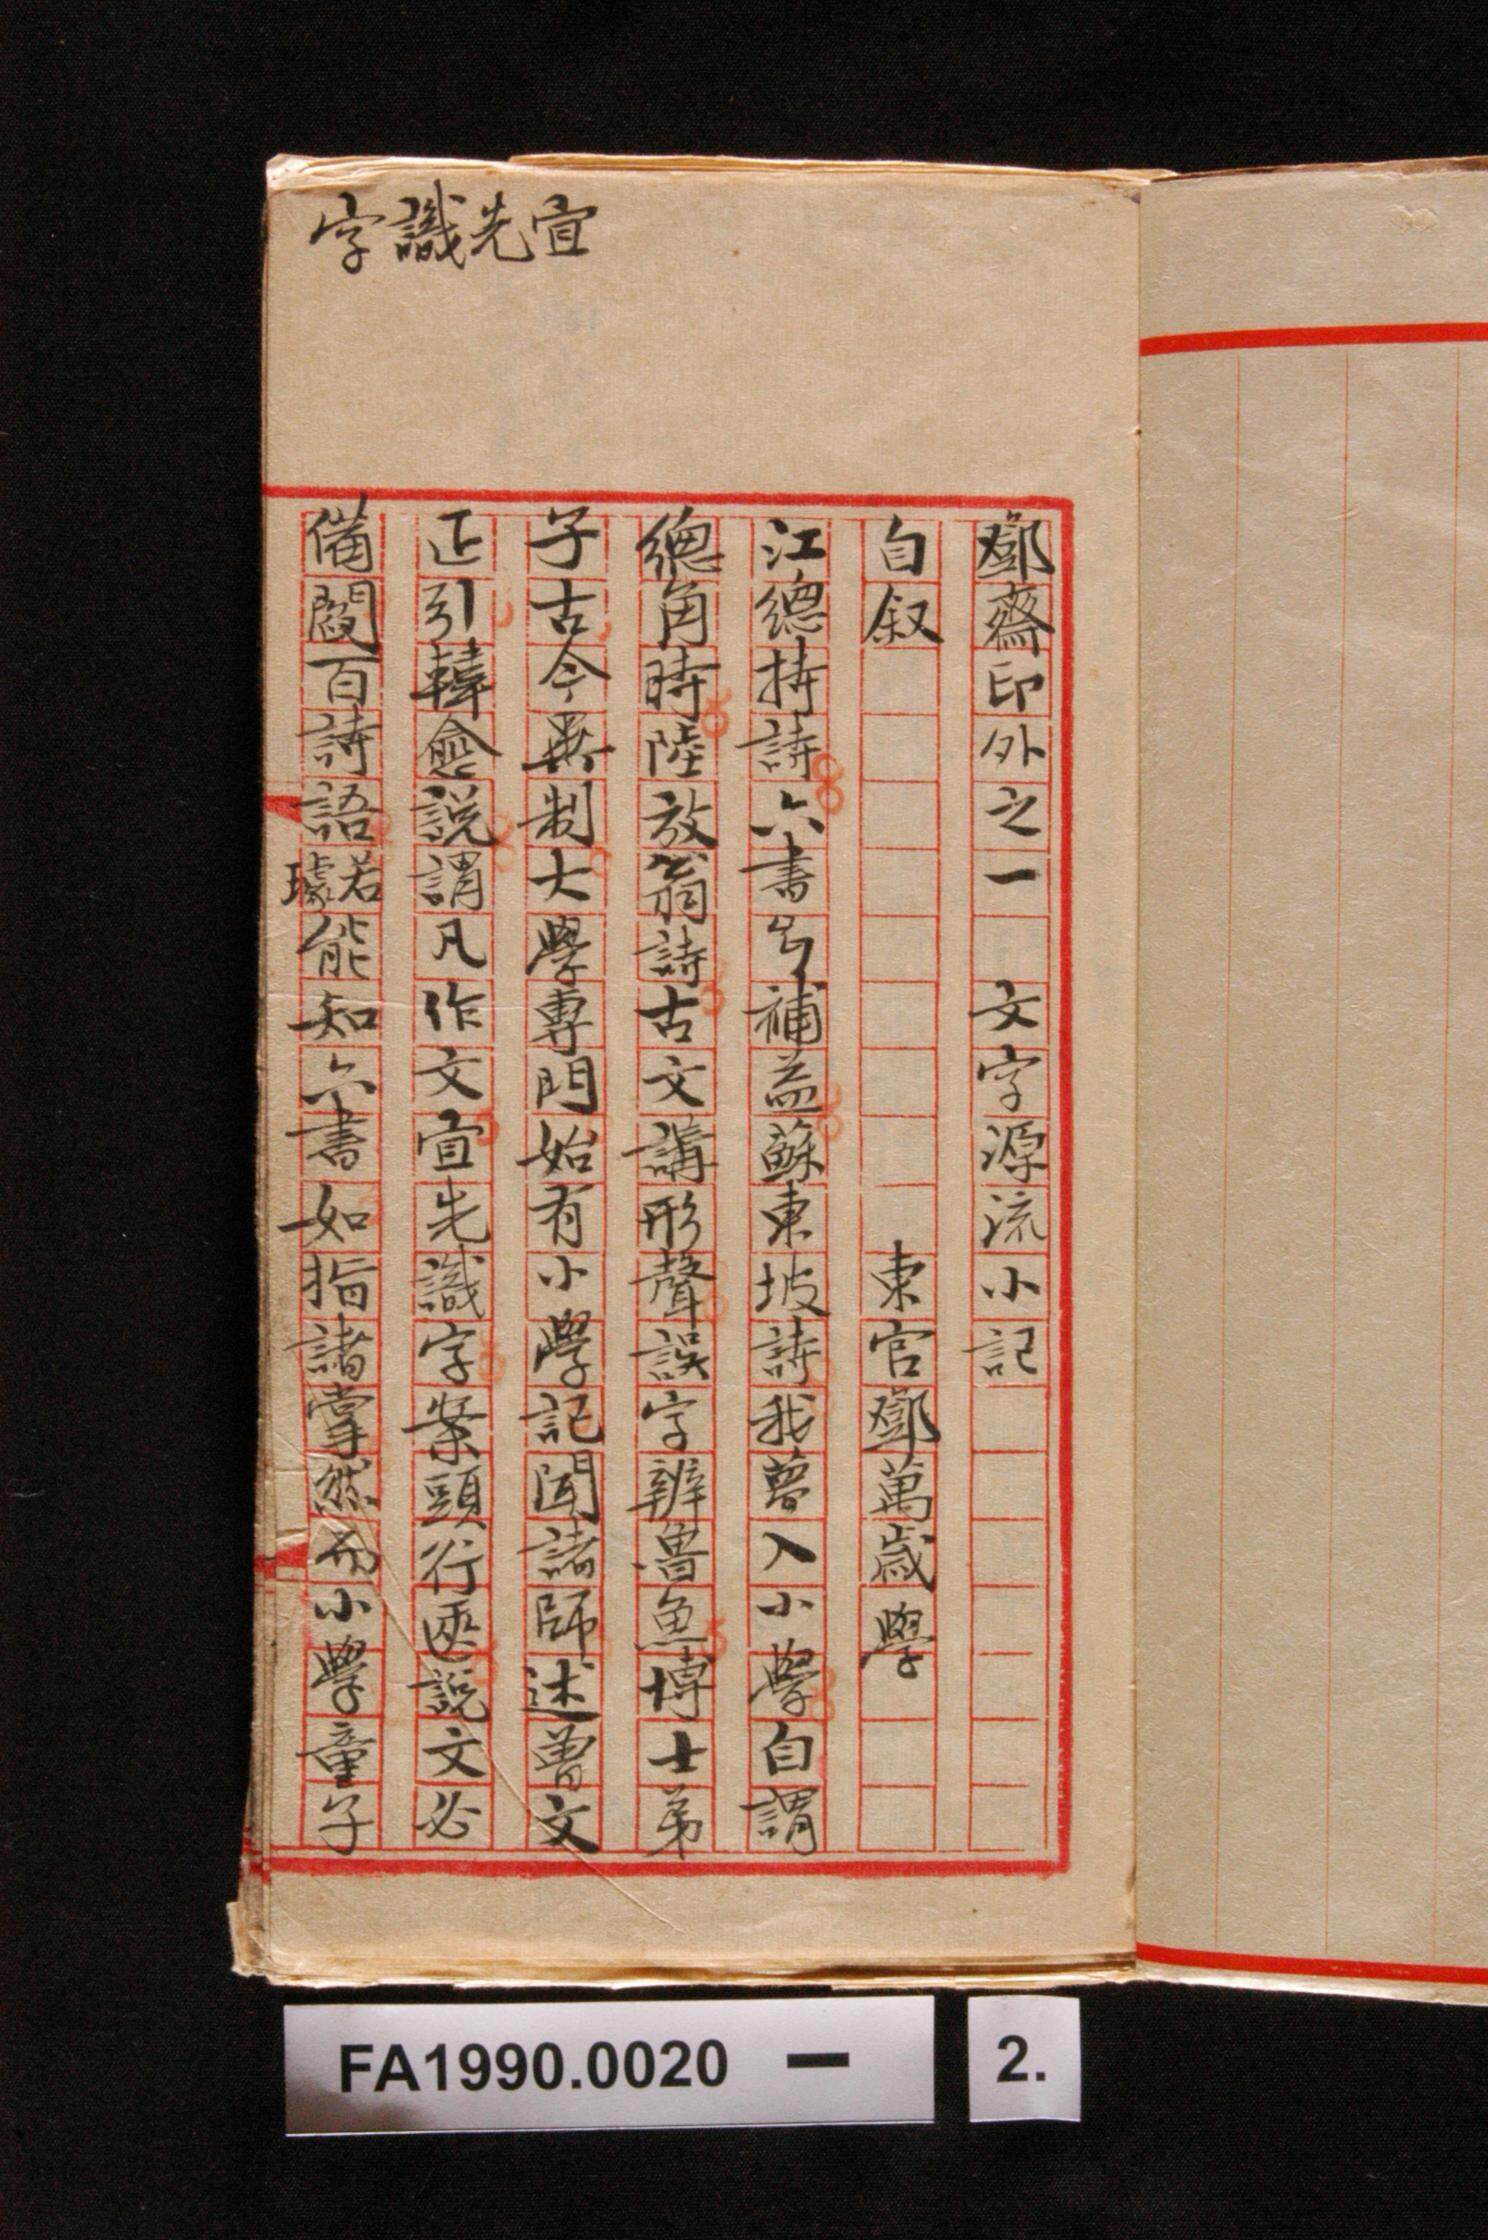 宜先識字
鄧齋印外之一　文字源流小記
自叙　東官鄧萬歲學
江總持詩六書兮補益蘇東坡詩我夢入小學自謂
總角時陸放翁詩古文講形聲誤字辨魯魚博士弟
子古今異制大學專門始有小學記聞諸師述曾文
正引韓愈說謂凡作文宜先識字案頭行匧說文必
備閱百詩語若璩能知六書如指諸掌然而小學童子
FA1990.0020 — 2.